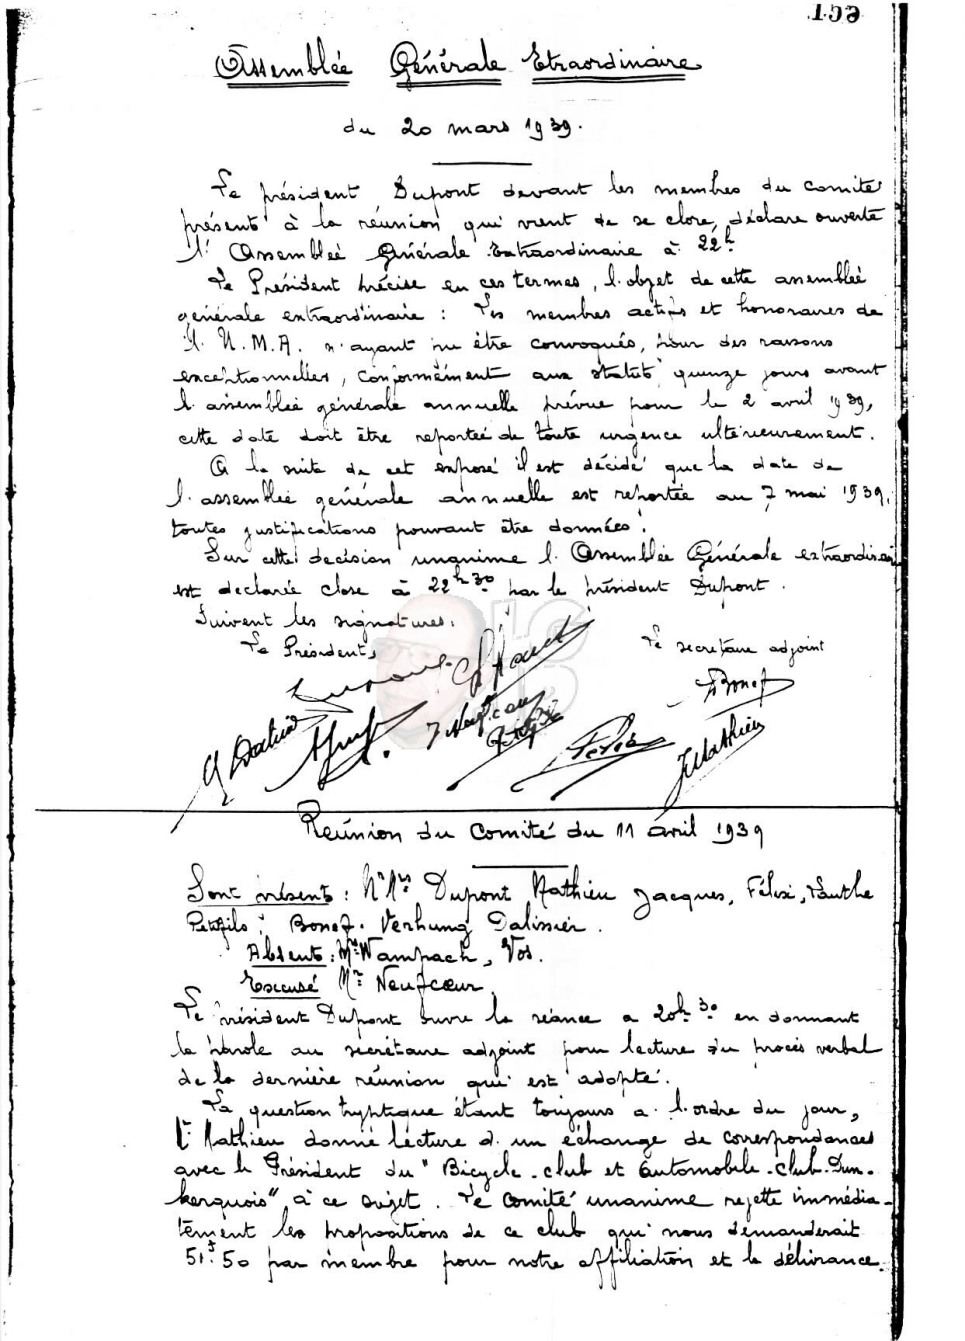 159
Assemblée Générale Etraordinaire
du 20 mars 1939.
Le président Dupont devant les membres du comité
présents à la réunion qui vient de se clore, déclare ouverte
l'Assemblée Générale Extraordinaire à 22h
Le Président précise en ces termes, l'objet de cette assemblée
générale extraordinaire : Les membres actifs et honoraires de
l'U.M.A. n'ayant pu être convoqués, pour des raisons
exceptionnelles, conformément aux statuts quinze jours avant
l'assemblée générale annuelle prévue pour le 2 avril 1939,
cette date doit être reportée de toute urgence ultérieurement.
A la suite de cet exposé il est décidé que la date de
l'assemblée générale annuelle est reportée au 7 mai 1939,
toutes justifications pouvant être données.
Sur cette décision unanime l'Assemblée Générale extraordinai
est déclarée close à 22h30 par le président Dupont.
Suivent les signatures:
Le Président, Le secrétaire adjoint
Dupont
Bonef
J Neufcœur
JMathieu
Réunion du Comité du 11 avril 1939
Sont présents : MMrs Dupont Mathieu Jacques, Félix,
Petitfils, Bonef. Verhung Dalissier.
Absents : Mrs Wampach, Vos.
Excusé Mr Neufcœur.
Le président Dupont ouvre la séance a 20h.30 en donnant
la parole au secrétaire adjoint pour lecture du procès verbal
de la dernière réunion qui est adopté.
La question tryptique étant toujours a l'ordre du jour,
Mr Mathieu donne lecture d'un échange de correspondances
avec le Président du "Bicycle-club et Automobile-Club-Dun-
kerquois" à ce sujet. Le Comité unanime rejette immédia-
tement les propositions de ce club qui nous demanderait
51f.50 par membre pour notre affiliation et la délivrance